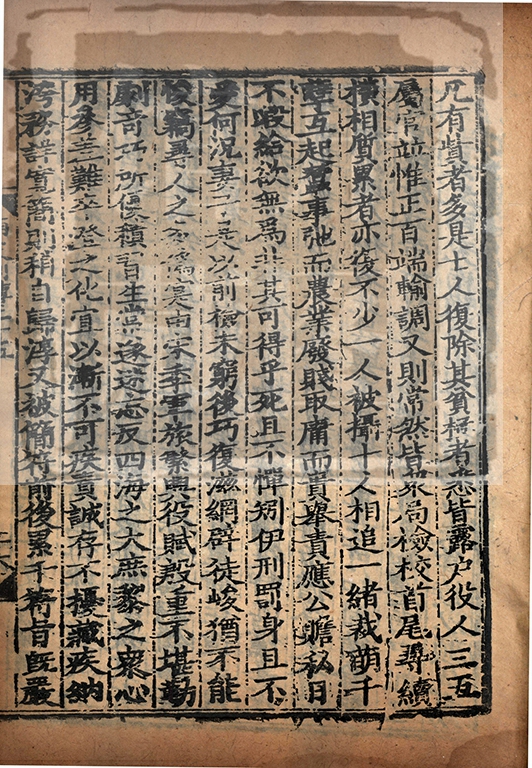 凡有貲者多是士人復除其貧極者悉皆露户役人三五
屬官竝惟正百端輸調又則常然皆衆局檢校首尾尋續
橫相質累者亦復不少一人被攝十人相追一緒裁萌千
孽互起蚕事弛而農業廢賤取庸而貴舉責應公贍私日
不暇給欲無爲非其可得乎死且不憚矧伊刑罰身且不
愛何況妻子是以前檢未窮後巧復滋網辟徒峻猶不能
悛竊尋人之多僞寔由宋季軍旅繁興役賦殷重不堪勤
劇奇巧所優積習生常遂迷忘反四海之大庶黎之衆心
用參差難卒澄之化宜以漸不可疾責誠存不擾藏疾納
汚務詳寬簡則稍自歸淳又被簡符前後累千符旨既嚴